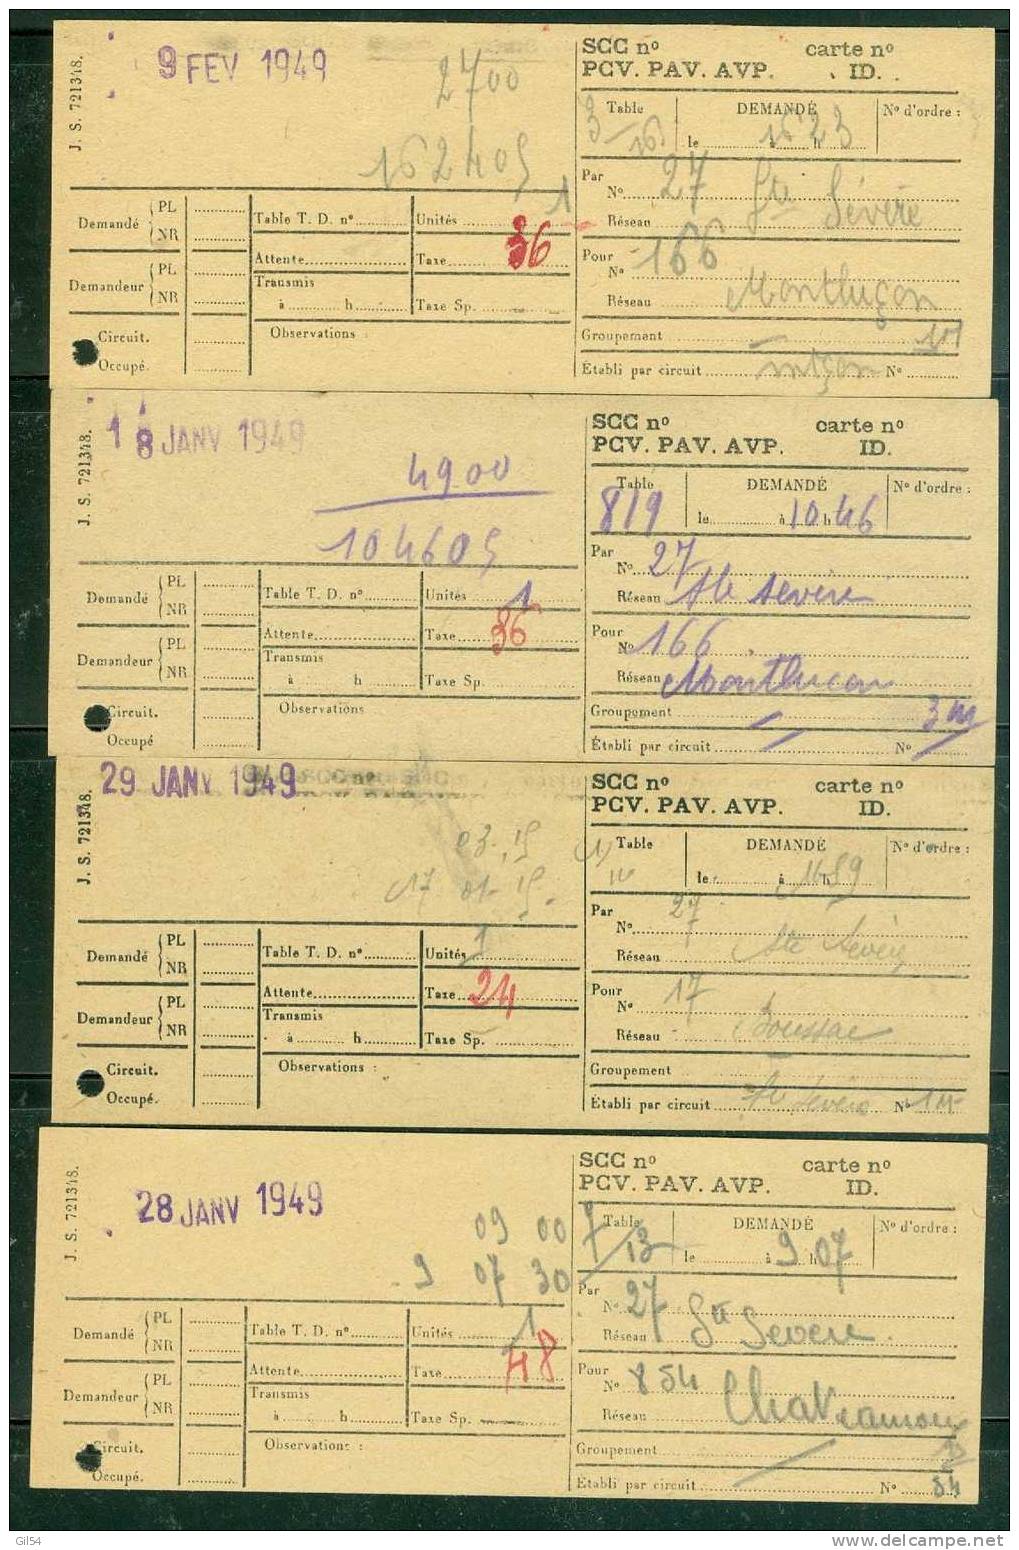 J. S. 721348.
9 FEV 1949
2700
162405
SCC nº carte nº
PCV. PAV. AVP. ID.
Table DEMANDÉ Nº d'ordre :
3/16 le à 16 h 23
Par Nº 27 Ste Sévère
Réseau
Pour Nº 166
Réseau Montluçon
Groupement
Établi par circuit Nº
Demandé PL NR
Demandeur PL NR
Circuit.
Occupé.
Table T. D. nº
Attente
Transmis
à h
Observations :
Unités 1
Taxe 36
Taxe Sp.
J. S. 721348.
18 JANV 1949
4900
104605
SCC nº carte nº
PCV. PAV. AVP. ID.
Table DEMANDÉ Nº d'ordre :
819 le à 10 h 46
Par Nº 27
Réseau Ste Sevère
Pour Nº 166
Réseau Montlucon
Groupement 3 m
Établi par circuit Nº
Demandé PL NR
Demandeur PL NR
Circuit.
Occupé
Table T. D. nº
Attente
Transmis
à h
Observations
Unités 1
Taxe 36
Taxe Sp.
J. S. 721348.
29 JANV 1949
03.15
17 01.15
SCC nº carte nº
PCV. PAV. AVP. ID.
Table DEMANDÉ Nº d'ordre :
le à 16 h 59
Par Nº 27
Réseau Ste Sévère
Pour Nº 17
Réseau Boussac
Groupement
Établi par circuit Ste Sévère Nº 1 m
Demandé PL NR
Demandeur PL NR
Circuit.
Occupé.
Table T. D. nº
Attente
Transmis
à h
Observations :
Unités 1
Taxe 24
Taxe Sp.
J. S. 721348.
28 JANV 1949
09 00
9 07 30
SCC nº carte nº
PCV. PAV. AVP. ID.
Table DEMANDÉ Nº d'ordre :
9/13 le à 9 h 07
Par Nº 27
Réseau Ste Severe
Pour Nº 854
Réseau Chateauroux
Groupement
Établi par circuit Nº 54
Demandé PL NR
Demandeur PL NR
Circuit.
Occupé.
Table T. D. nº
Attente
Transmis
à h
Observations :
Unités 1
Taxe 48
Taxe Sp.
Gil54
www.delcampe.net